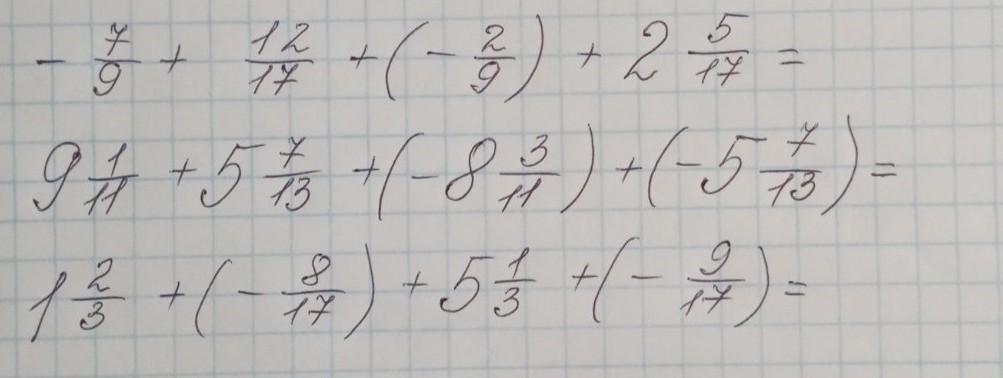 - 7/9 + 12/17 + (- 2/9) + 2 5/17 =
9 1/11 + 5 7/13 + (- 8 3/11) + (- 5 7/13) =
1 2/3 + (- 8/17) + 5 1/3 + (- 9/17) =